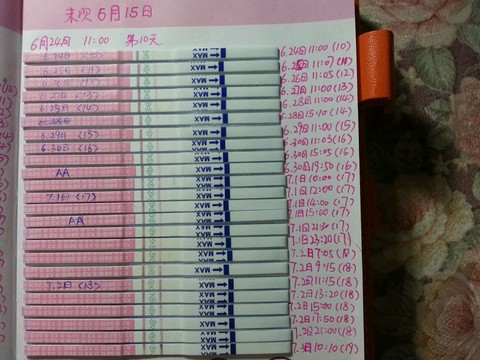 来吸 6月15日
6月24日 11:00 第10天
6.24日 11:00 (10)
6.25日 11:07 (11)
6.26日 11:05 (12)
6.27日 11:00 (13)
6.28日 11:00 (14)
6.28日 15:10 (14)
6.29日 11:00 (15)
6.30日 11:03 (16)
6.30日 15:05 (16)
6.30日 19:50 (16)
7.1日 10:00 (17)
7.1日 12:00 (17)
7.1日 14:00 (17)
7.1日 15:00 (17)
7.1日 21:30 (17)
7.1日 23:20 (17)
7.2日 7:05 (18)
7.2日 9:15 (18)
7.2日 11:15 (18)
7.2日 13:20 (18)
7.2日 15:00 (18)
7.2日 17:50 (18)
7.2日 21:00 (18)
7.3日 10:10 (19)
6.24日 (10)
6.25日 (11)
6.27日 (13)
6.28日 (14)
6.29日 (15)
6.30日 (16)
AA
7.1日 (17)
AA
7.2日 (18)
MAX